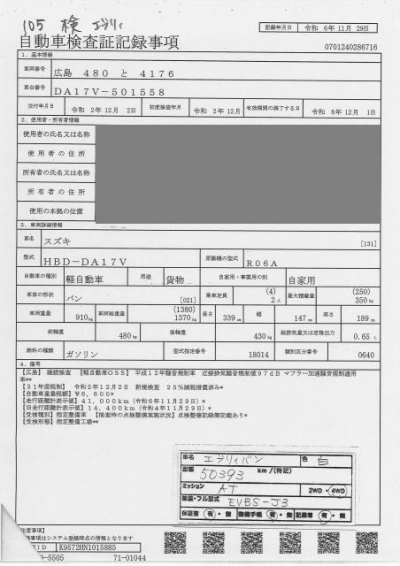 105 検 エブリィ
記録年月日 令和 6年11月29日
自動車検査証記録事項
0701240286716
1. 基本情報
車両番号 広島 480 と 4176
車台番号 DA17V-501558
交付年月日 令和 2年12月 2日 初度検査年月 令和 2年12月 有効期間の満了する日 令和 8年12月 1日
2. 使用者・所有者情報
使用者の氏名又は名称
使用者の住所
所有者の氏名又は名称
所有者の住所
使用の本拠の位置
3. 車両詳細情報
車名 スズキ [131]
型式 HBD-DA17V 原動機の型式 R06A
自動車の種別 軽自動車 用途 貨物 自家用・事業用の別 自家用
車体の形状 バン [021] 乗車定員 (4) 2人 最大積載量 (250) 350kg
車両重量 910kg 車両総重量 (1380) 1370kg 長さ 339cm 幅 147cm 高さ 189cm
前軸重 480kg 後軸重 430kg 総排気量又は定格出力 0.65 L
燃料の種類 ガソリン 型式指定番号 18014 類別区分番号 0640
4. 備考
【広島】 継続検査 【軽自動車OSS】 平成12年騒音規制車 近接排気騒音規制値97dB マフラー加速騒音規制適用車**
【31年度税制】 令和2年12月2日 新規検査 25%減税措置済み*
【自動車重量税額】 ¥6,600*
【走行距離計表示値】 41,000km (令和6年11月29日)*
【旧走行距離計表示値】 14,400km (令和4年11月29日)*
【受検種別】 指定整備車 【検査時の点検整備実施状況】 点検整備記録簿記載あり*
【受検形態】 指定整備工場**
車名 エブリィバン 色 白
距離 50393 km/(特記)
ミッション AT 2WD・4WD
架装・フル型式 EVBS-J3
保証書 有・無 整備手帳 有・無 記録簿 有・無
K9572HN1015885
-5505 71-01044